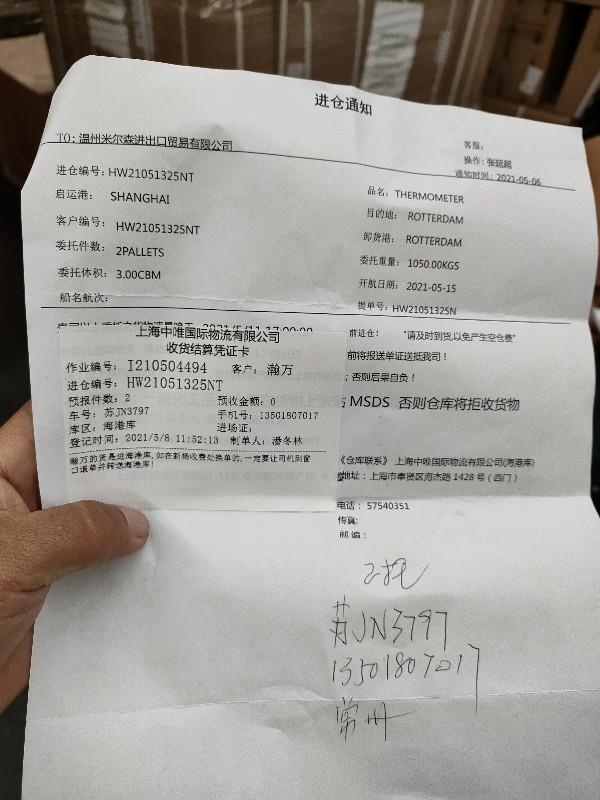 进仓通知
TO: 温州米尔森进出口贸易有限公司
客服:
操作: 张延超
通知时间: 2021-05-06
进仓编号: HW21051325NT
品名: THERMOMETER
启运港: SHANGHAI
目的地: ROTTERDAM
客户编号: HW21051325NT
卸货港: ROTTERDAM
委托件数: 2PALLETS
委托重量: 1050.00KGS
委托体积: 3.00CBM
开航日期: 2021-05-15
船名航次:
提单号: HW21051325N
2021/5/11 17:00:00
前进仓! "请及时到货,以免产生空仓费"
前将报送单证送抵我司!
; 否则后果自负!
MSDS 否则仓库将拒收货物
上海中唯国际物流有限公司
收货结算凭证卡
作业编号: I210504494 客户: 瀚万
进仓编号: HW21051325NT
预报件数: 2 预收金额: 0
车号: 苏JN3797 手机号: 13501807017
库区: 海港库 进场证:
登记时间: 2021/5/8 11:52:13 制单人: 潘冬林
瀚万的货是进海港库, 如在新杨收费处换单的, 一定要让司机到窗
口退单并转送海港库!
《仓库联系》 上海中唯国际物流有限公司(海港库)
地址: 上海市奉贤区海杰路 1428 号 (西门)
电话: 57540351
传真:
邮编:
2托
苏JN3797
13501807017
常州